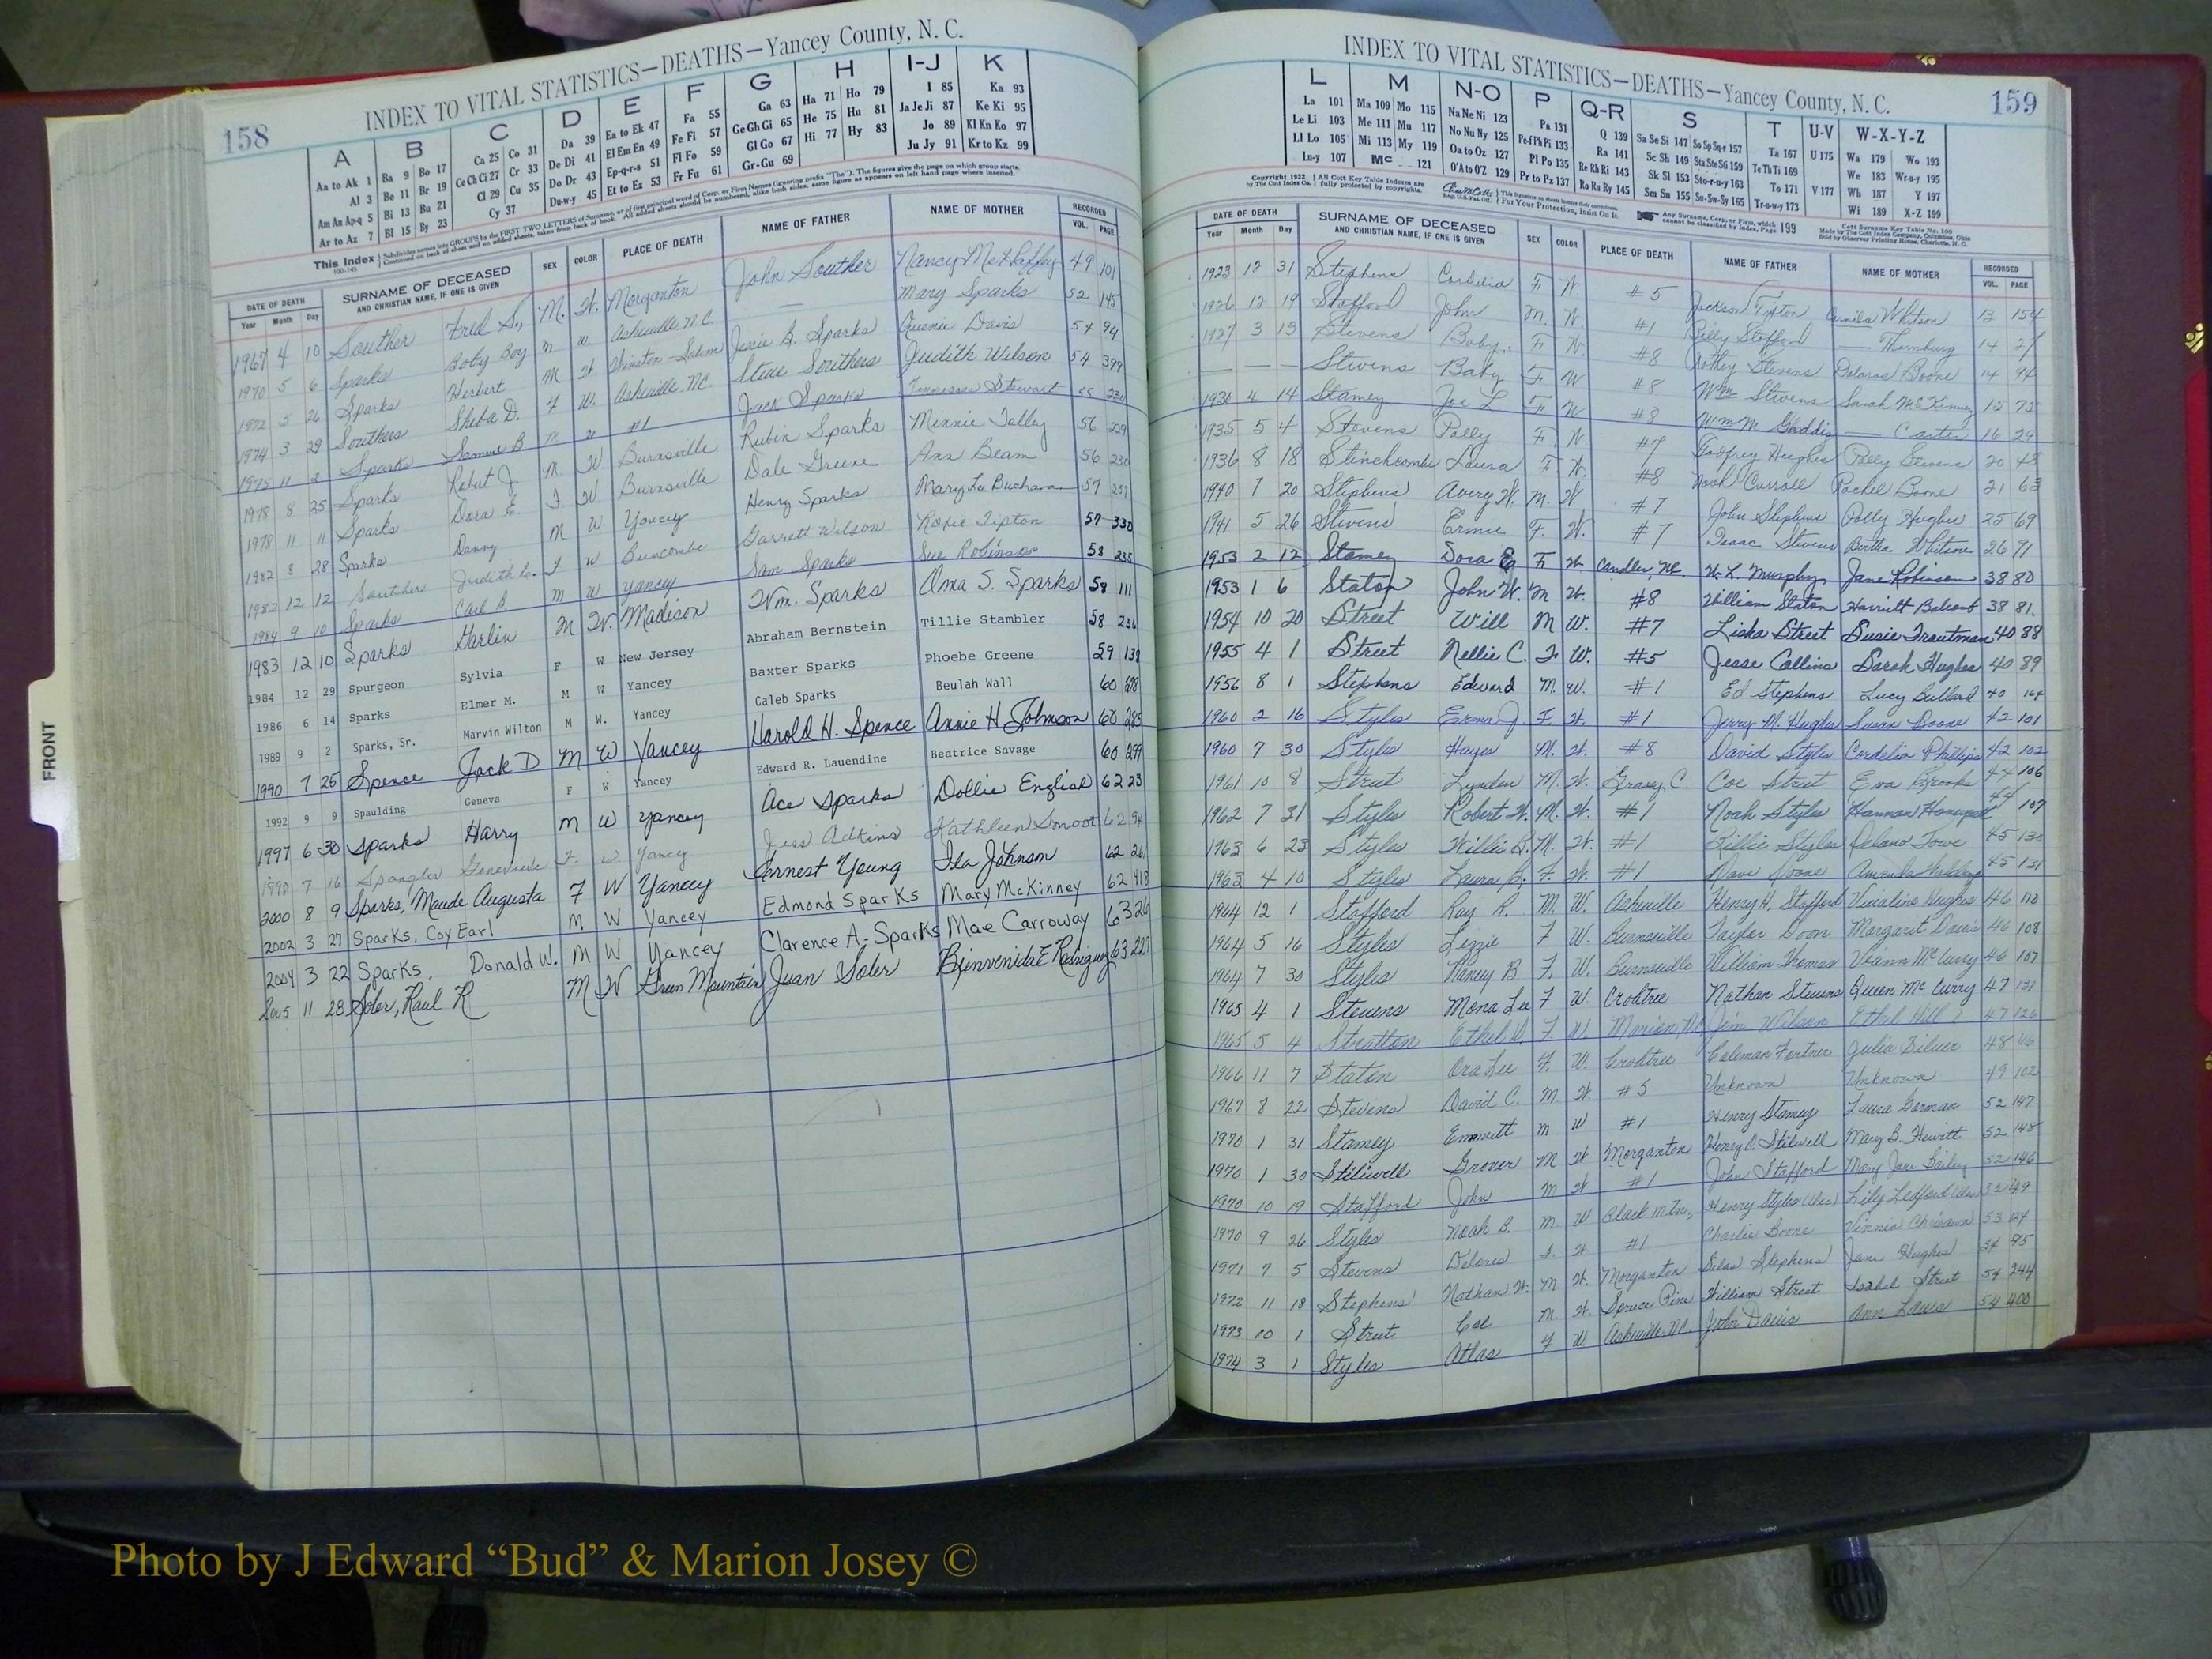 158
INDEX TO VITAL STATISTICS—DEATHS—Yancey County, N. C.
A B C D E F G H I-J K
Aa to Ak 1 Ba 9 Bo 17 Ca 25 Co 31 Da 39 Ea to Ek 47 Fa 55 Ga 63 Ha 71 Ho 79 I 85 Ka 93
Al 3 Be 11 Br 19 Ce Ch Ci 27 Cr 33 De Di 41 El Em En 49 Fe Fi 57 Ge Gh Gi 65 He 75 Hu 81 Ja Je Ji 87 Ke Ki 95
Am An Ap-q 5 Bi 13 Bu 21 Cl 29 Cu 35 Do Dr 43 Ep-q-r-s 51 Fl Fo 59 Gl Go 67 Hi 77 Hy 83 Jo 89 Kl Kn Ko 97
Ar to Az 7 Bl 15 By 23 Cy 37 Du-w-y 45 Et to Ez 53 Fr Fu 61 Gr-Gu 69 Ju Jy 91 Kr to Kz 99
This Index
DATE OF DEATH SURNAME OF DECEASED SEX COLOR PLACE OF DEATH NAME OF FATHER NAME OF MOTHER RECORDED
Year Month Day AND CHRISTIAN NAME, IF ONE IS GIVEN VOL. PAGE
1967 4 10 Souther Fred S., M. W. Morganton John Souther Nancy McHaffey 49 101
1970 5 6 Sparks Baby Boy M W. Asheville, N.C. — Mary Sparks 52 145
1972 3 26 Sparks Herbert M W. Winston-Salem Jessie B. Sparks Queenie Davis 54 94
1974 3 29 Southers Sheba D. F W. Asheville, N.C. Steve Southers Judith Wilson 54 399
1975 11 2 Sparks Sammie B M W #1 Jack Sparks Tennessee Stewart 55
1978 8 25 Sparks Robert J. M. W Burnsville Rubin Sparks Minnie Talley 56 229
1978 11 11 Sparks Dora E. F W Burnsville Dale Greene Ann Beam 56 230
1982 8 28 Sparks Danny M W Yancey Henry Sparks Mary Lee Buchanan 57 257
1982 12 12 Souther Judith L. F W Buncombe Garrett Wilson Roxie Tipton 57 330
1984 9 10 Sparks Carl B. M W Yancey Sam Sparks Sue Robinson 58 235
1983 12 10 Sparks Harlin M W. Madison Wm. Sparks Oma S. Sparks 58 111
1984 12 29 Spurgeon Sylvia F W New Jersey Abraham Bernstein Tillie Stambler 58 236
1986 6 14 Sparks Elmer M. M W Yancey Baxter Sparks Phoebe Greene 59 138
1989 9 2 Sparks, Sr. Marvin Wilton M W. Yancey Caleb Sparks Beulah Wall 60
1990 7 25 Spence Jack D M W Yancey Harold H. Spence Annie H. Johnson 60 285
1992 9 9 Spaulding Geneva F W Yancey Edward R. Lauendine Beatrice Savage 60 299
1997 6 30 Sparks Harry M W Yancey Ace Sparks Dollie English 62 23
7 16 Spangler Genevieve F. W Yancey Jess Adkins Kathleen Smoot 62 94
2000 8 9 Sparks, Maude Augusta F W Yancey Earnest Young Ila Johnson 62 261
2002 3 27 Sparks, Coy Earl M W Yancey Edmond Sparks Mary McKinney 62 418
2004 3 22 Sparks, Donald W. M W Yancey Clarence A. Sparks Mae Carroway 63 26
2005 11 28 Soler, Raul R M W Green Mountain Juan Soler Bienvenida E Rodriguez 63 227
FRONT
INDEX TO VITAL STATISTICS—DEATHS—Yancey County, N. C.
159
L M N-O P Q-R S T U-V W-X-Y-Z
La 101 Ma 109 Mo 115 Na Ne Ni 123 Pa 131 Q 139 Sa Se Si 147 So Sp Sq-r 157 Ta 167 U 175 Wa 179 Wo 193
Le Li 103 Me 111 Mu 117 No Nu Ny 125 Pe-f Ph Pi 133 Ra 141 Sc Sh 149 Sta Ste Sti 159 Te Th Ti 169 We 183 Wr-u-y 195
Ll Lo 105 Mi 113 My 119 Oa to Oz 127 Pl Po 135 Re Rh Ri 143 Sk Sl 153 Sto-r-u-y 163 To 171 V 177 Wh 187 Y 197
Lu-y 107 Mc 121 O'A to O'Z 129 Pr to Pz 137 Ro Ru Ry 145 Sm Sn 155 Su-Sw-Sy 165 Tr-u-w-y 173 Wi 189 X-Z 199
Copyright 1922 All Cott Key Table Indexes are fully protected by copyrights. For Your Protection, Insist On It. Any Surname, Corp. or Firm, which cannot be classified by Index, Page 199
DATE OF DEATH SURNAME OF DECEASED SEX COLOR PLACE OF DEATH NAME OF FATHER NAME OF MOTHER RECORDED
Year Month Day AND CHRISTIAN NAME, IF ONE IS GIVEN VOL. PAGE
1923 12 31 Stephens Cordelia F W #5 Jackson Tipton Whitson 13 154
1926 12 19 Stafford John M. W. #1 Billy Stafford — Thornburg 14 27
1927 3 13 Stevens Baby F W. #8 Stevens Boone 14 94
— — — Stevens Baby F W #8 Wm Stevens Sarah McKinney 15 75
1930 4 14 Stamey Joe L F W #8 Wm M Gaddis — Carter 16 29
1935 5 4 Stevens Polly F. W. #7 Godfrey Hughes Polly Stevens 20 48
1936 8 18 Stinchcombe Laura F W. #8 Noah Carroll Rachel Boone 21 63
1940 7 20 Stephens Avery W. M. W #7 John Stephens Polly Hughes 25 69
1941 5 26 Stevens F. W. #7 Isaac Stevens Bertha Whitson 26 91
1953 2 12 Stamey Dora F W Candler, N.C. W. L. Murphy Jane Robinson 38 80
1953 1 6 Staton John W. M W. #8 William Staton Harriett 38 81.
1954 10 20 Street Will M W. #7 Liska Street Susie Troutman 40 88
1955 4 1 Street Nellie C. F. W. #5 Jesse Collins Sarah Hughes 40 89
1956 8 1 Stephens Edward M. W. #1 Ed Stephens Lucy Bullard 40 164
1960 2 16 Styles Erma J F. W. #1 Jerry M. Hughes Susan Boone 42 101
1960 7 30 Styles Hayes M. W. #8 David Styles Cordelia Phillips 42 102
1961 10 8 Street Lynden M. W. Grassy C. Coe Street Eva Brooks 44 106
1962 7 31 Styles Robert W. M. W. #1 Noah Styles Hannah 44 107
1963 6 23 Styles Willis B. M. W. #1 Billie Styles 45 130
1963 4 10 Styles Laura B. F. W. #1 Dave Boone Amanda 45 131
1964 12 1 Stafford Ray R. M. W. Asheville Henry H. Stafford Hughes 46 110
1964 5 16 Styles Lizzie F W. Burnsville Margaret Davis 46 108
1964 7 30 Styles Nancy B. F. W. Burnsville William Thomas McCurry 46 107
1965 4 1 Stevens Mona Lee F W. Crabtree Nathan Stevens Queen McCurry 47 131
1965 5 4 Stratton Ethel W. F W. Marion, N.C. Jim Wilson Ethel Hill 47 126
1966 11 7 Staton Ora Lee F. W. Crabtree Coleman Fortner Julia Silver 48 116
1967 8 22 Stevens David C. M W. #5 Unknown Unknown 49 102
1970 1 31 Stamey Emmett M W #1 Henry Stamey Laura Gorman 52 147
1970 1 30 Stilwell Grover M W Morganton Henry O. Stilwell Mary B. Hewitt 52 148
1970 10 19 Stafford John M W #1 John Stafford Mary Jane Bailey 52 146
1970 9 26 Styles Noah B. M. W Black Mtn., Henry Styles (dec) Lily Ledford (dec) 52 149
1971 7 5 Stevens Delores F. W. #1 Charlie Boone Vinnia Chrisawn 53 124
1972 11 18 Stephens Nathan W. M W. Morganton Silas Stephens Jane Hughes 54 95
1973 10 1 Street Cal M. W. Spruce Pine William Street Isabel Street 54 244
1974 3 1 Styles Atlas F W. Asheville N.C. John Davis Ann Laws 54 400
Photo by J Edward “Bud” & Marion Josey ©